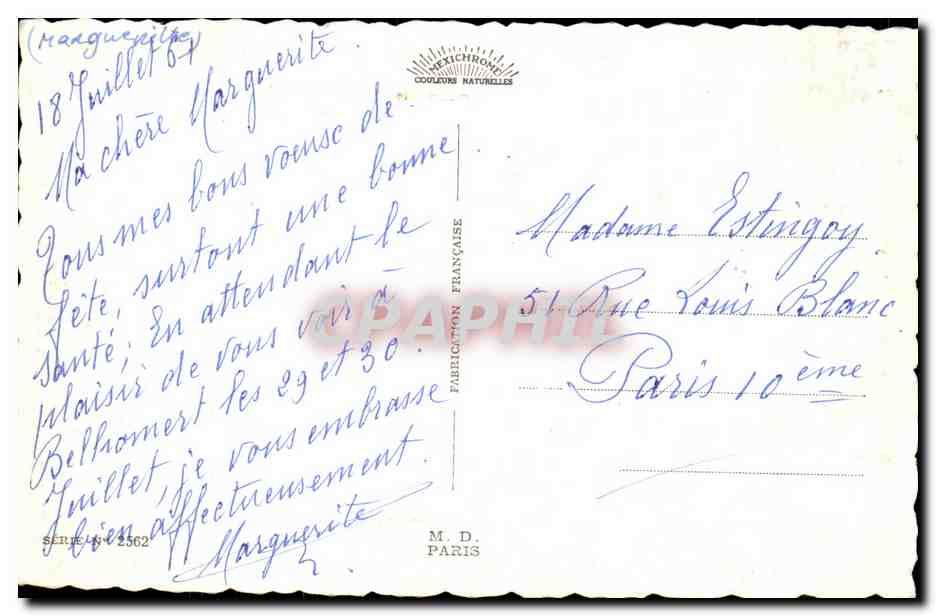 (Marguerite)
18 Juillet 61
Ma chère Marguerite.
Tous mes bons voeux de
fête, surtout une bonne
santé; En attendant le
plaisir de vous voir à
Belhomert les 29 et 30.
Juillet, je vous embrasse
bien affectueusement.
Marguerite
SÉRIE N° 2562
MEXICHROME
COULEURS NATURELLES
FABRICATION FRANÇAISE
M. D.
PARIS
Madame Estingoy
51 Rue Louis Blanc
Paris 10ème
CPAPHIL